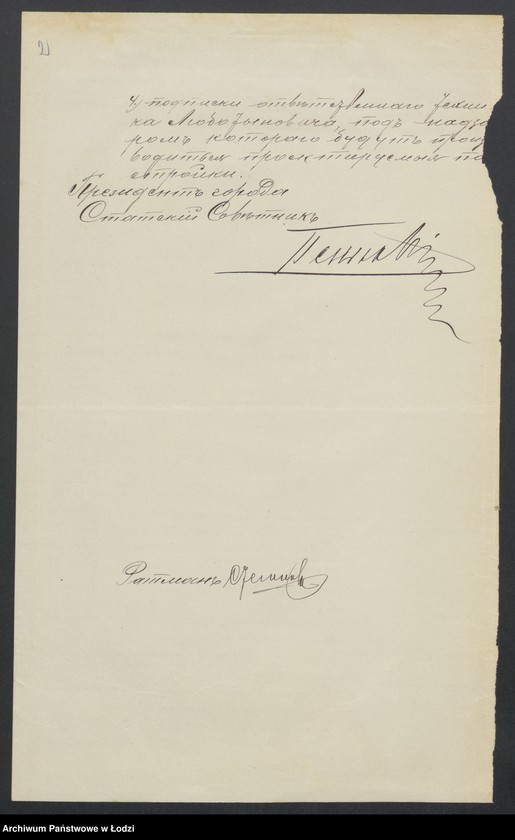 4) подписки ответственнаго техни
ка Люботыновича, подъ надзо
ромъ котораго будутъ произ
водиться проектируемыя по
стройки.
Президентъ города
Статскій Советникъ
Ратманъ
Archiwum Państwowe w Łodzi